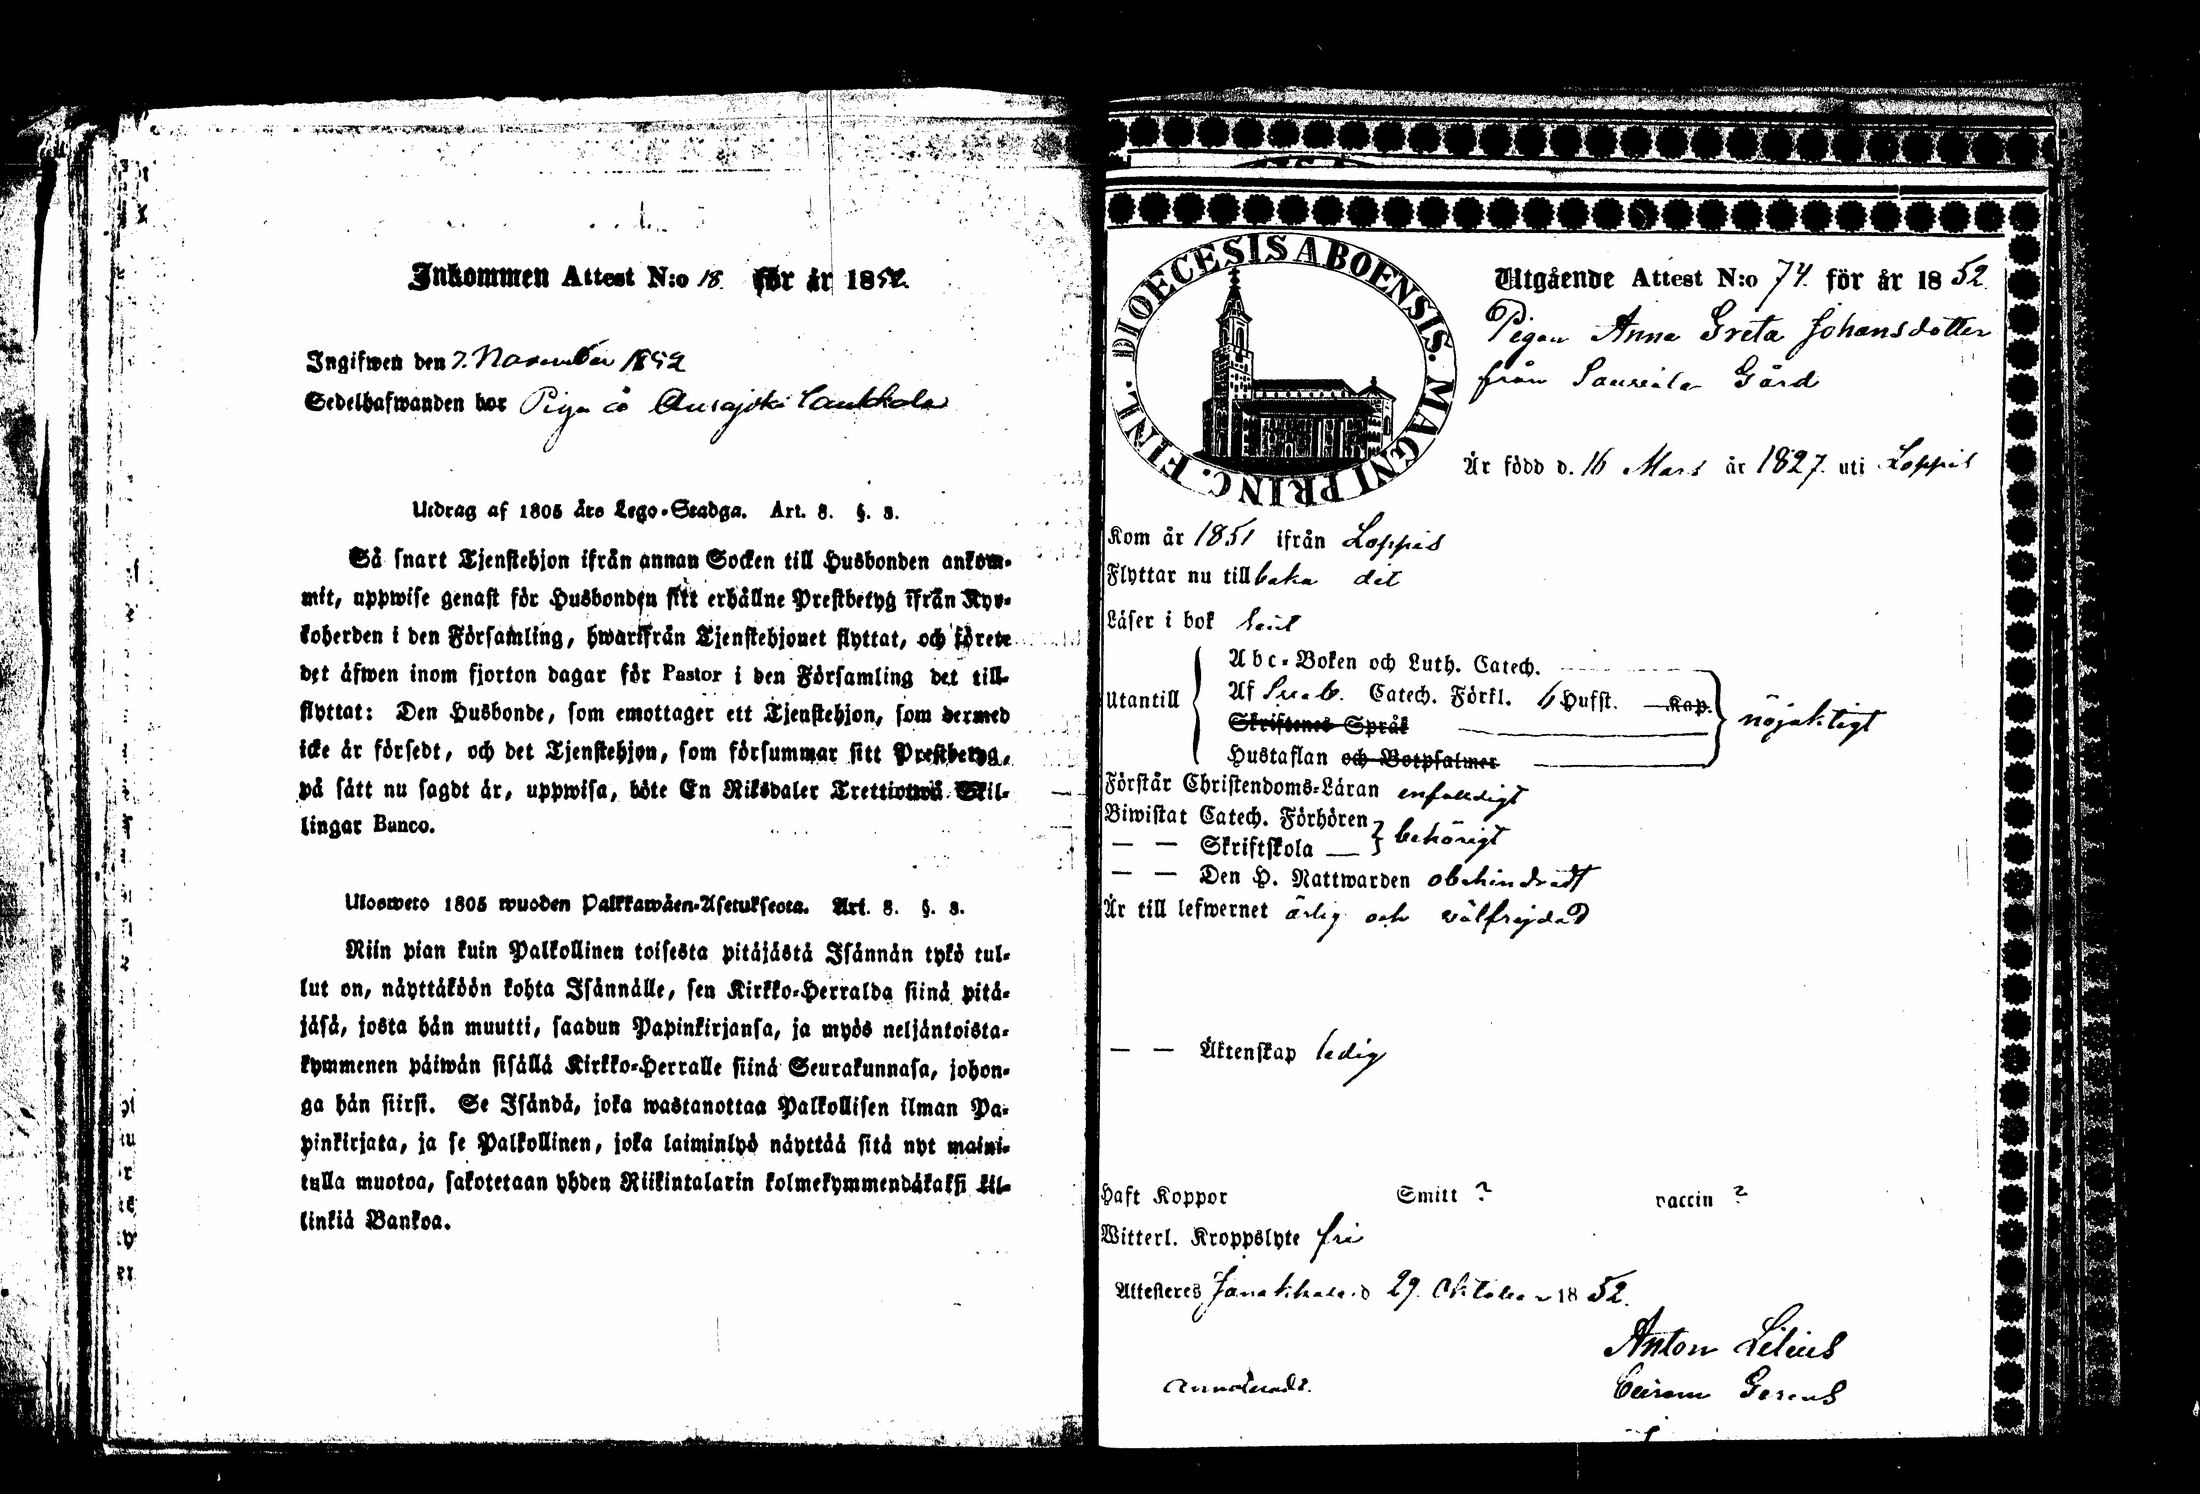 Inkommen Attest N:o 18 för år 1852.
Ingifwen den 7. November 1852
Sedelhafwanden bor Piga å Ourajoki Laukkala
Utdrag af 1805 års Lego-Stadga. Art. 8. §. 3.
Så snart Tjenstehjon ifrån annan Socken till Husbonden ankom-
mit, uppwise genast för Husbonden sitt erhållne Prestbetyg ifrån Kyr-
koherden i den Församling, hwarifrån Tjenstehjonet flyttat, och förete
det äfwen inom fjorton dagar för Pastor i den Församling det till-
flyttat: Den Husbonde, som emottager ett Tjenstehjon, som dermed
icke är försedt, och det Tjenstehjon, som försummar sitt Prestbetyg,
på sätt nu sagdt är, uppwisa, böte En Riksdaler Trettiotwå Skil-
lingar Banco.
Ulosweto 1805 wuoden Palkkawäen-Asetuksesta. Art. 8. §. 3.
Niin pian kuin Palkollinen toisesta pitäjästä Isännän tykö tul-
lut on, näyttäköön kohta Isännälle, sen Kirkko-Herralda siinä pitä-
jäsä, josta hän muutti, saadun Papinkirjansa, ja myös neljäntoista-
kymmenen päiwän sisällä Kirkko-Herralle siinä Seurakunnasa, johon-
ga hän siirsi. Se Isändä, joka wastanottaa Palkollisen ilman Pa-
pinkirjata, ja se Palkollinen, joka laiminlyö näyttää sitä nyt maini-
tulla muotoa, sakotetaan yhden Riikintalarin kolmekymmendäkaksi kil-
linkiä Bankoa.
DIOECESIS ABOENSIS. MAGNI PRINC. FINL.
Utgående Attest N:o 74. för år 1852
Pigan Anna Greta Johansdotter
från Gård
Är född d. 16 Mars år 1827. uti Loppis
Kom år 1851 ifrån Loppis
Flyttar nu tillbaka dit
Läser i bok
Abc-Boken och Luth. Catech.
Utantill Af Sveb. Catech. Förkl. 6 Hufst. Kap. nöjaktigt
Skriftenes Språk
Hustaflan och Botpsalmer
Förstår Christendoms-Läran enfaldigt
Biwistat Catech. Förhören
— — Skriftskola — behörigt
— — Den H. Nattwarden obehindradt
Är till lefwernet ärlig och välfrejdad
— — Äktenskap ledig
Haft Koppor Smitt ? vaccin ?
Witterl. Kroppslyte fri
Attesteres Janakkala d 29. Oktober 1852.
Anton Lilius
Annoteradt.